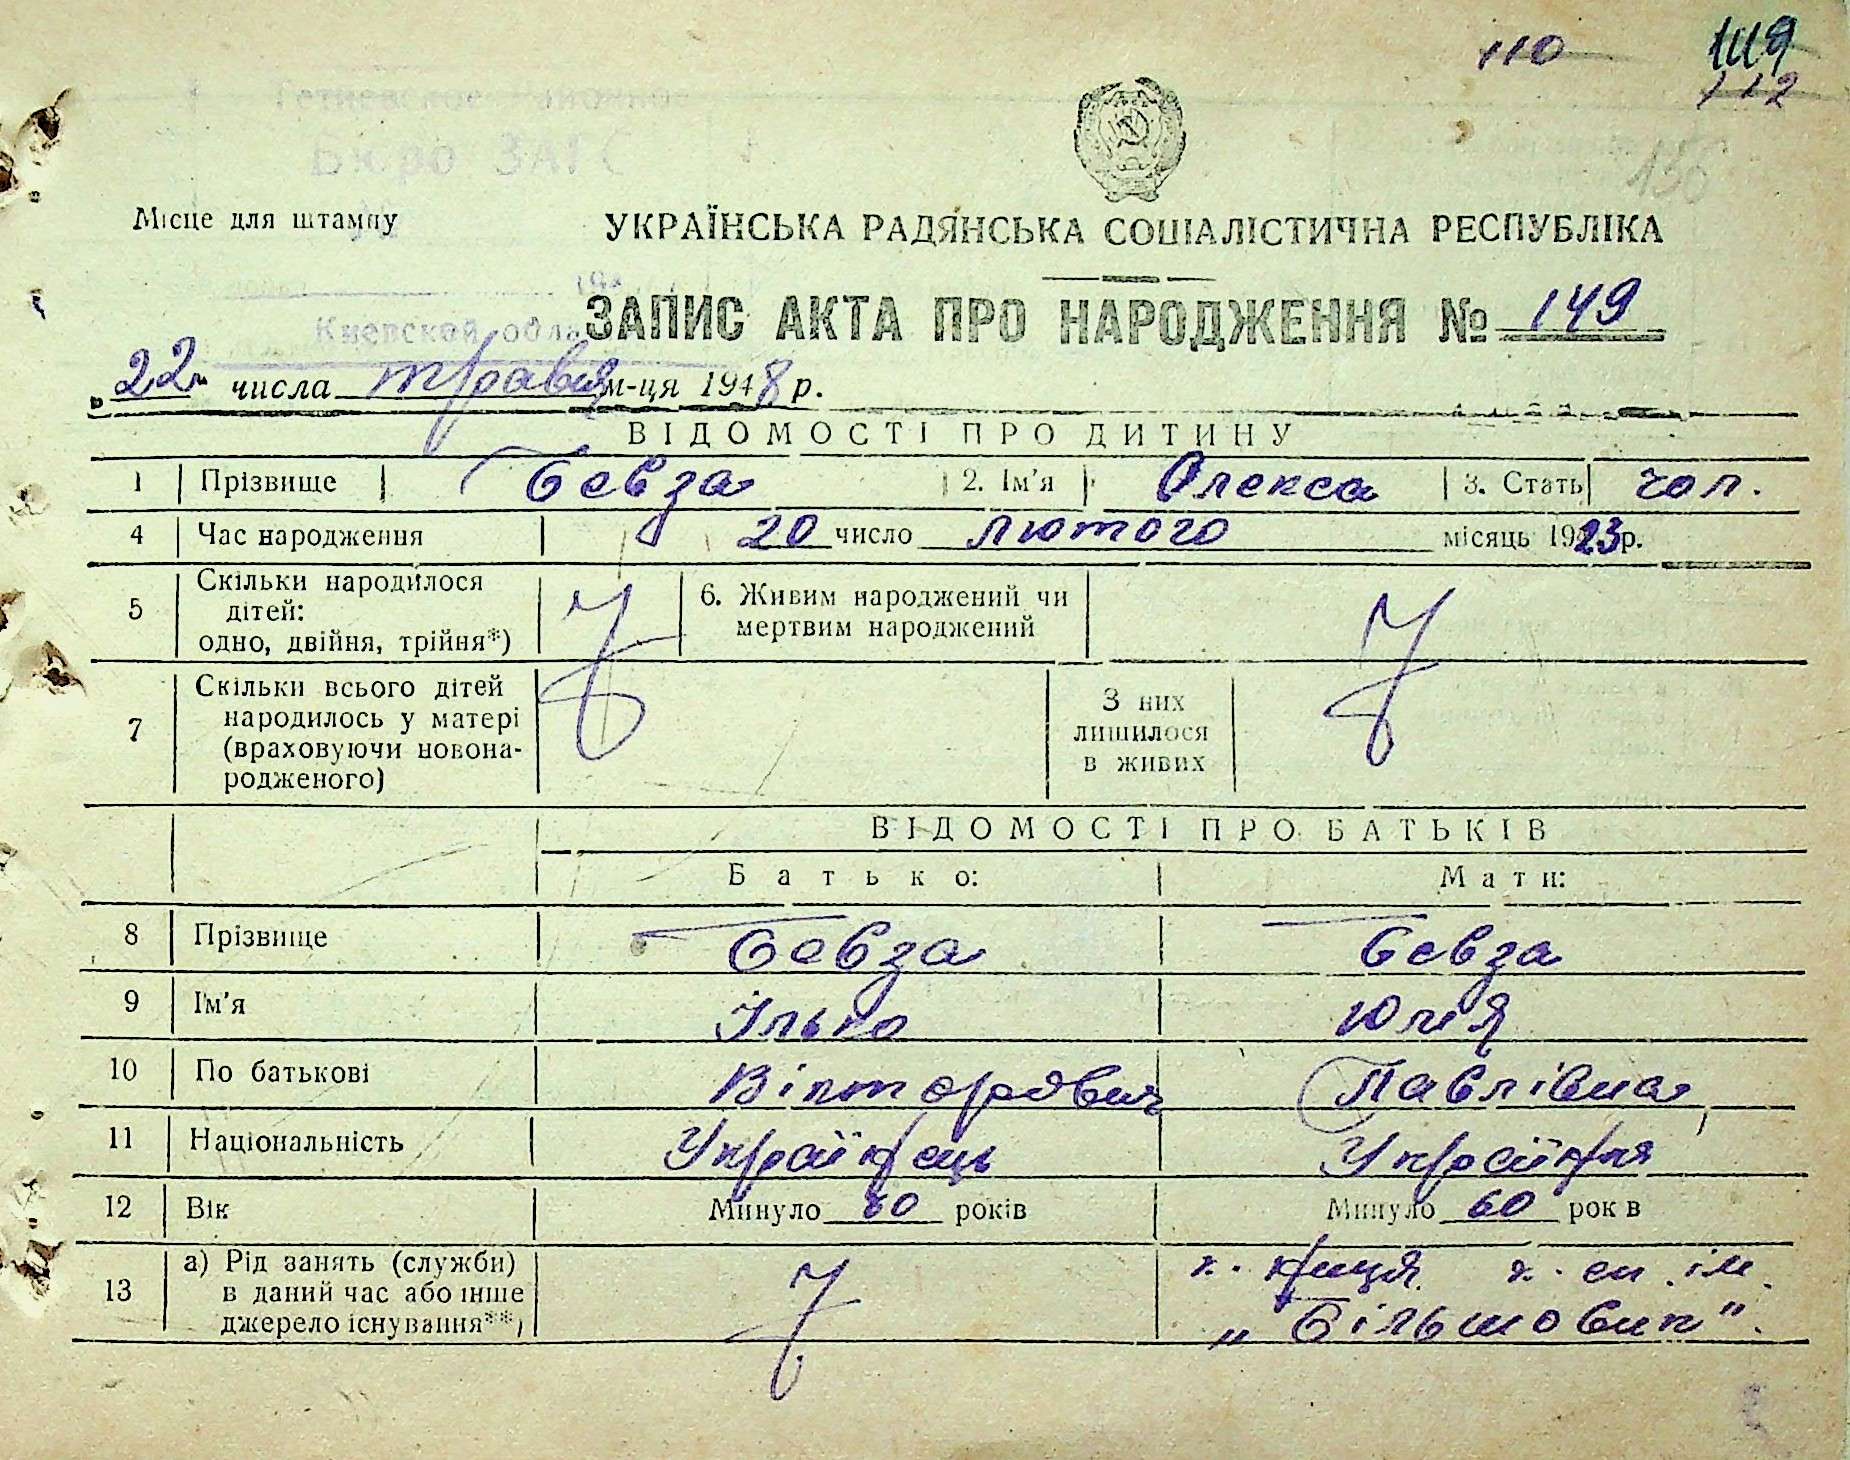 110 119
112
156
Тетиевское районно
Бюро ЗАГС
Місце для штампу УКРАЇНСЬКА РАДЯНСЬКА СОЦІАЛІСТИЧНА РЕСПУБЛІКА
Киевской обла
ЗАПИС АКТА ПРО НАРОДЖЕННЯ № 149
„22" числа травня м-ця 1948 р.
ВІДОМОСТІ ПРО ДИТИНУ
1 Прізвище Бевза 2. Ім'я Олекса 3. Стать чол.
4 Час народження 20 число лютого місяць 1923 р.
5 Скільки народилося дітей: одно, двійня, трійня*) 6. Живим народжений чи мертвим народжений
7 Скільки всього дітей народилось у матері (враховуючи новонародженого) З них лишилося в живих
ВІДОМОСТІ ПРО БАТЬКІВ
Батько: Мати:
8 Прізвище Бевза Бевза
9 Ім'я Ілько Юлія
10 По батькові Вікторович Павлівна
11 Національність Українець Українка
12 Вік Минуло 60 років Минуло 60 рок в
13 а) Рід занять (служби) в даний час або інше джерело існування**) к-ниця к-сп. ім.
„Більшовик".